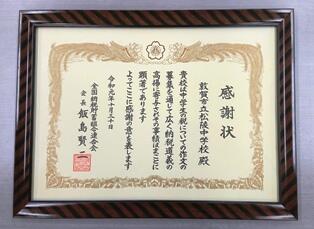 感謝状
敦賀市立松陵中学校 殿
貴校は中学生の税についての作文の
募集を通じて広く納税道義の
高揚に寄与されその事績はまことに
顕著であります
よってここに感謝の意を表します
令和元年十月三十日
全国納税貯蓄組合連合会
会長 飯島賢二